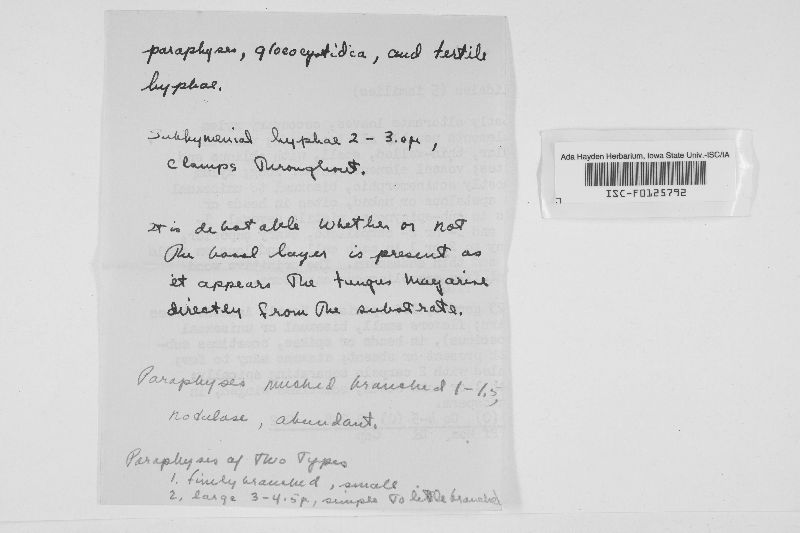 paraphyses, gloeocystidia, and fertile
hyphae.
Subhymenial hyphae 2 - 3.0µ,
clamps Throughout.
It is debatable Whether or not
The basal layer is present as
it appears The fungus may arise
directly from The substrate.
Paraphyses branched 1-1.5,
nodulose, abundant.
Paraphyses of Two Types
1. finely branched, small
2. large 3-4.5µ, simple To little branched
Ada Hayden Herbarium, Iowa State Univ.-ISC/IA
ISC-F0125792